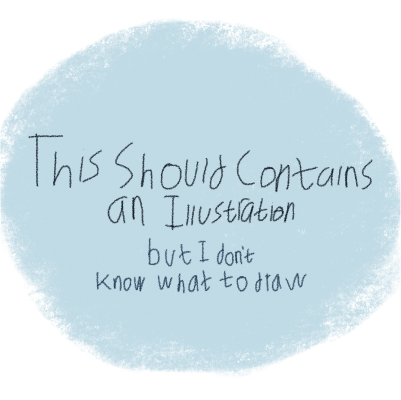 This Should Contains
an Illustration
but I don't
know what to draw